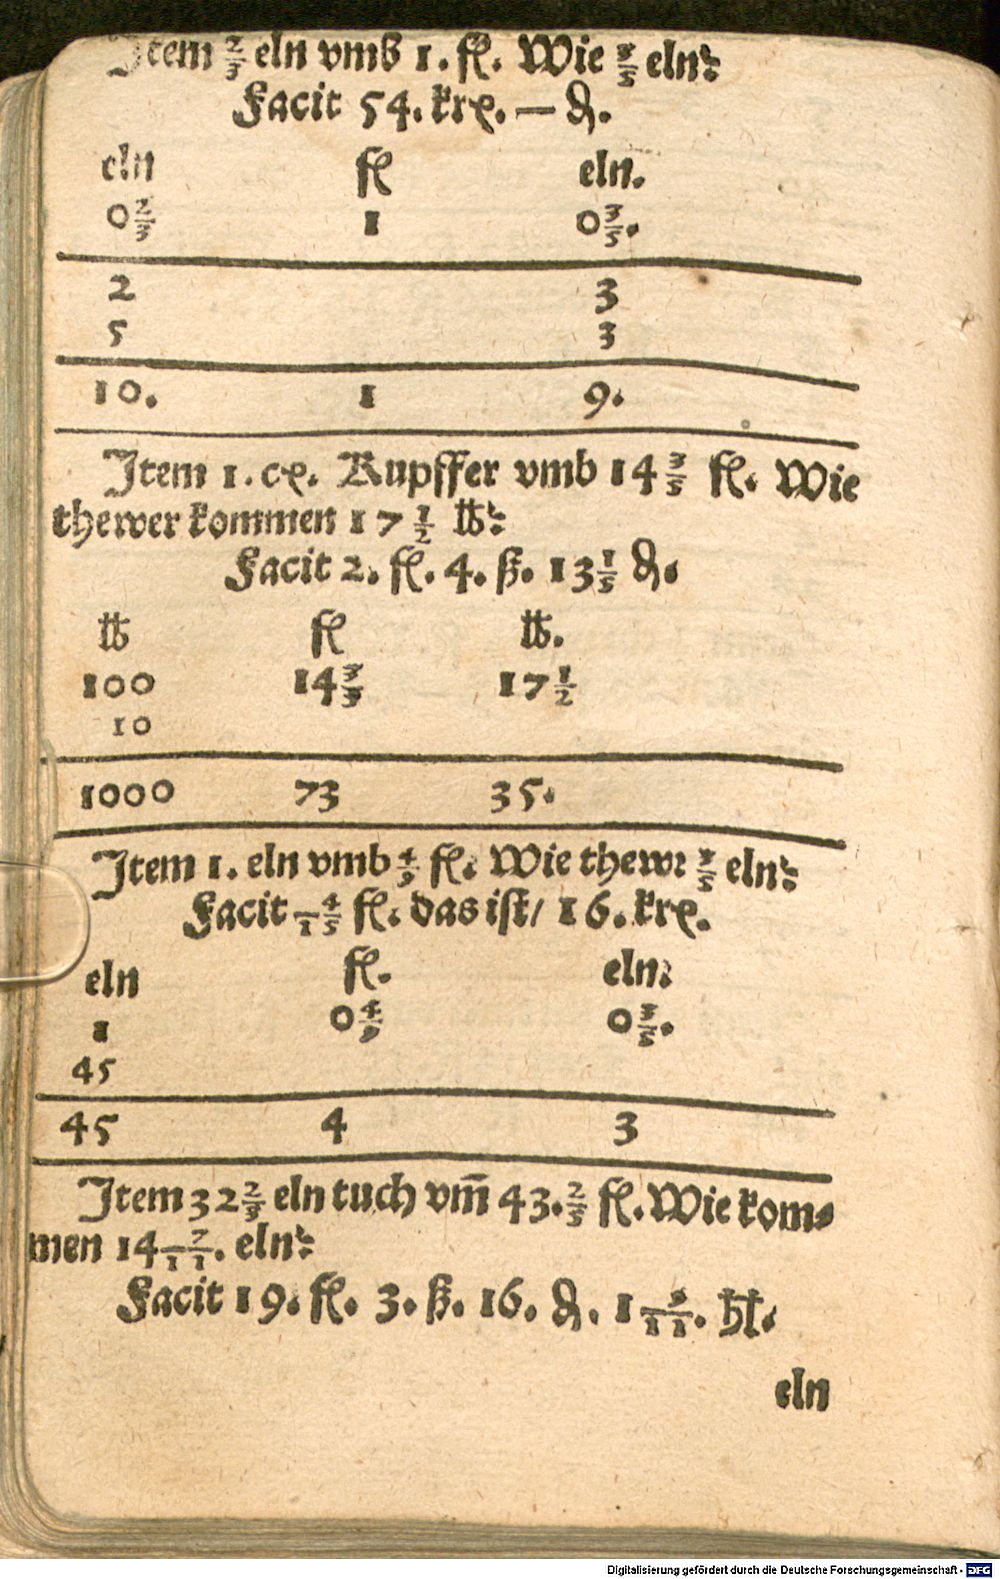 Item 2/3 eln vmb 1. fl. Wie 3/5 eln?
Facit 54. krx. — ₰.
eln fl eln.
0 2/3 1 0 3/5.
2 3
5 3
10. 1 9.
Item 1. cx. Kupffer vmb 14 3/5 fl. Wie
thewer kommen 17 1/2 ℔?
Facit 2. fl. 4. ß. 13 1/5 ₰.
℔ fl ℔.
100 14 3/5 17 1/2
10
1000 73 35.
Item 1. eln vmb 4/9 fl. Wie thewr 3/5 eln?
Facit 4/15 fl. das ist/ 16. krx.
eln fl. eln.
1 0 4/9 0 3/5.
45
45 4 3
Item 32 2/3 eln tuch vm̄ 43. 2/5 fl. Wie kom-
men 14 7/11. eln?
Facit 19. fl. 3. ß. 16. ₰. 1 hl.
eln
Digitalisierung gefördert durch die Deutsche Forschungsgemeinschaft - DFG